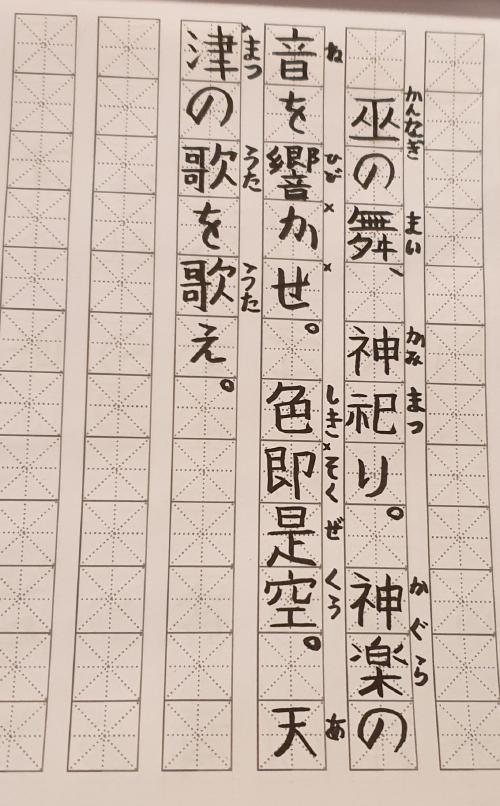 巫の舞、神祀り。神楽の
かんなぎ まい かみ まつ かぐら
音を響かせ。色即是空。天
ね ひび しき そく ぜ くう あ
津の歌を歌え。
まつ うた うた